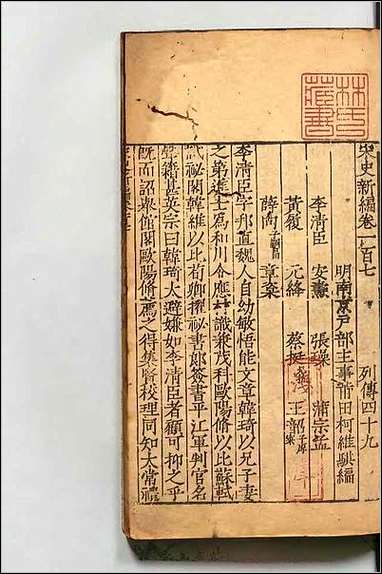 林氏藏書
宋史新編卷一百七 列傳四十九
明南京戶部主事莆田柯維騏編
李清臣 安燾 張璪 蒲宗孟
黃履 元絳 蔡挺 王韶子厚寀
薛向子嗣昌 章楶
李清臣字邦直魏人自幼敏悟能文章韓琦以兄子妻
之第進士為和川令應材識兼茂科歐陽修以比蘇軾
試祕閣韓維以比荀卿擢祕書郎簽書平江軍判官名
聲籍甚英宗曰韓琦太避嫌如李清臣者顧可抑之乎
既而詔舉館閣歐陽修薦之得集賢校理同知太常禮